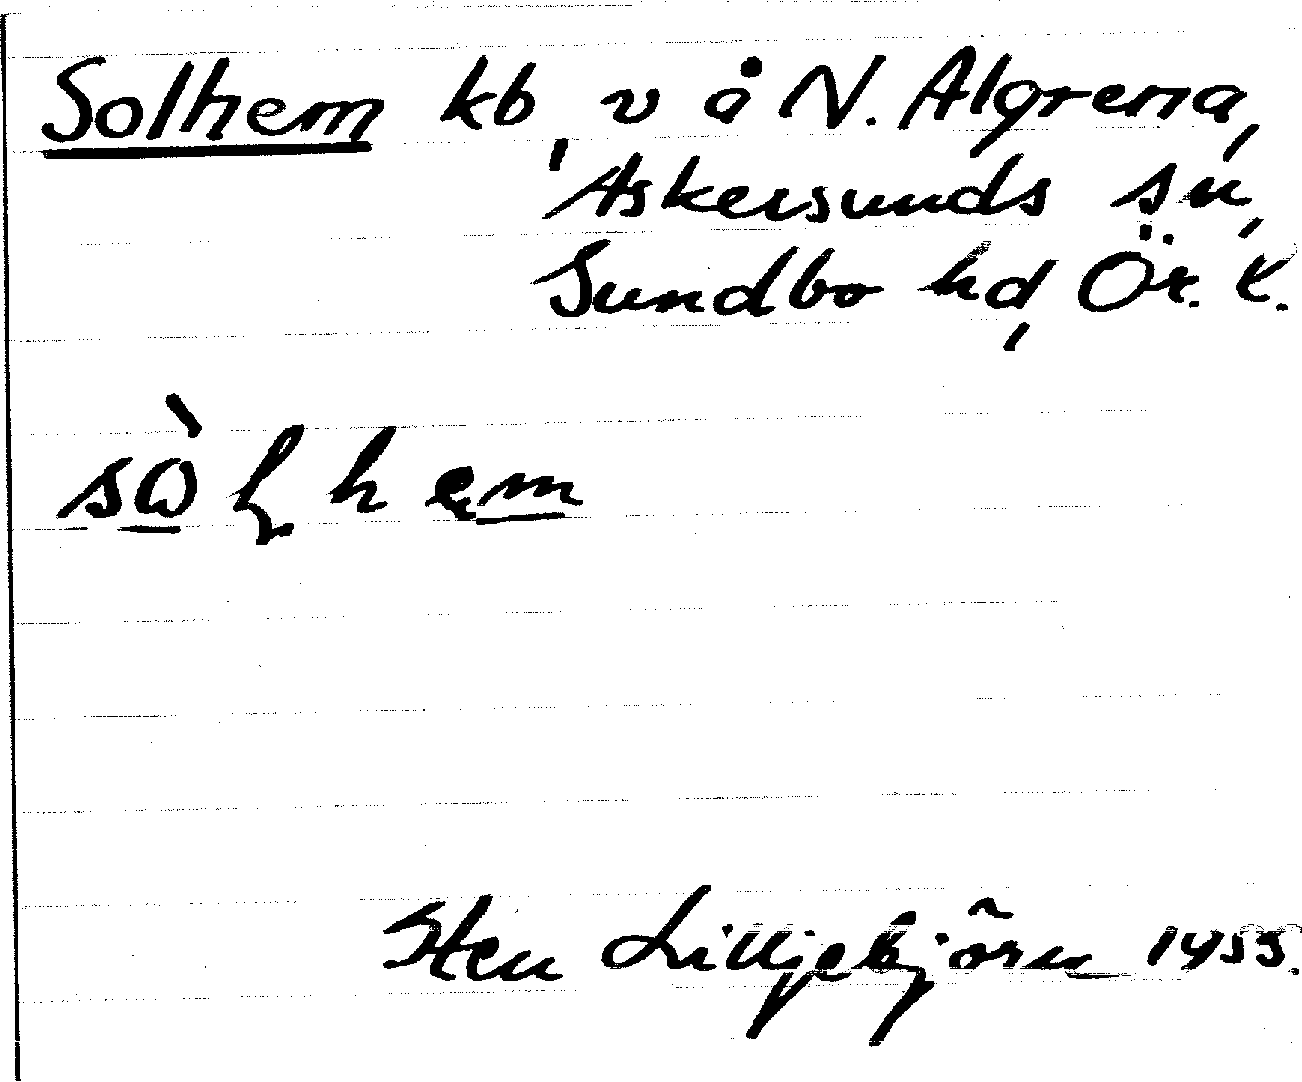 Solhem kb, v å N. Algrena,
Askersunds sn,
Sundbo hd, Ör. l.
sòlhem
Sten Lilljebjörn 1955.